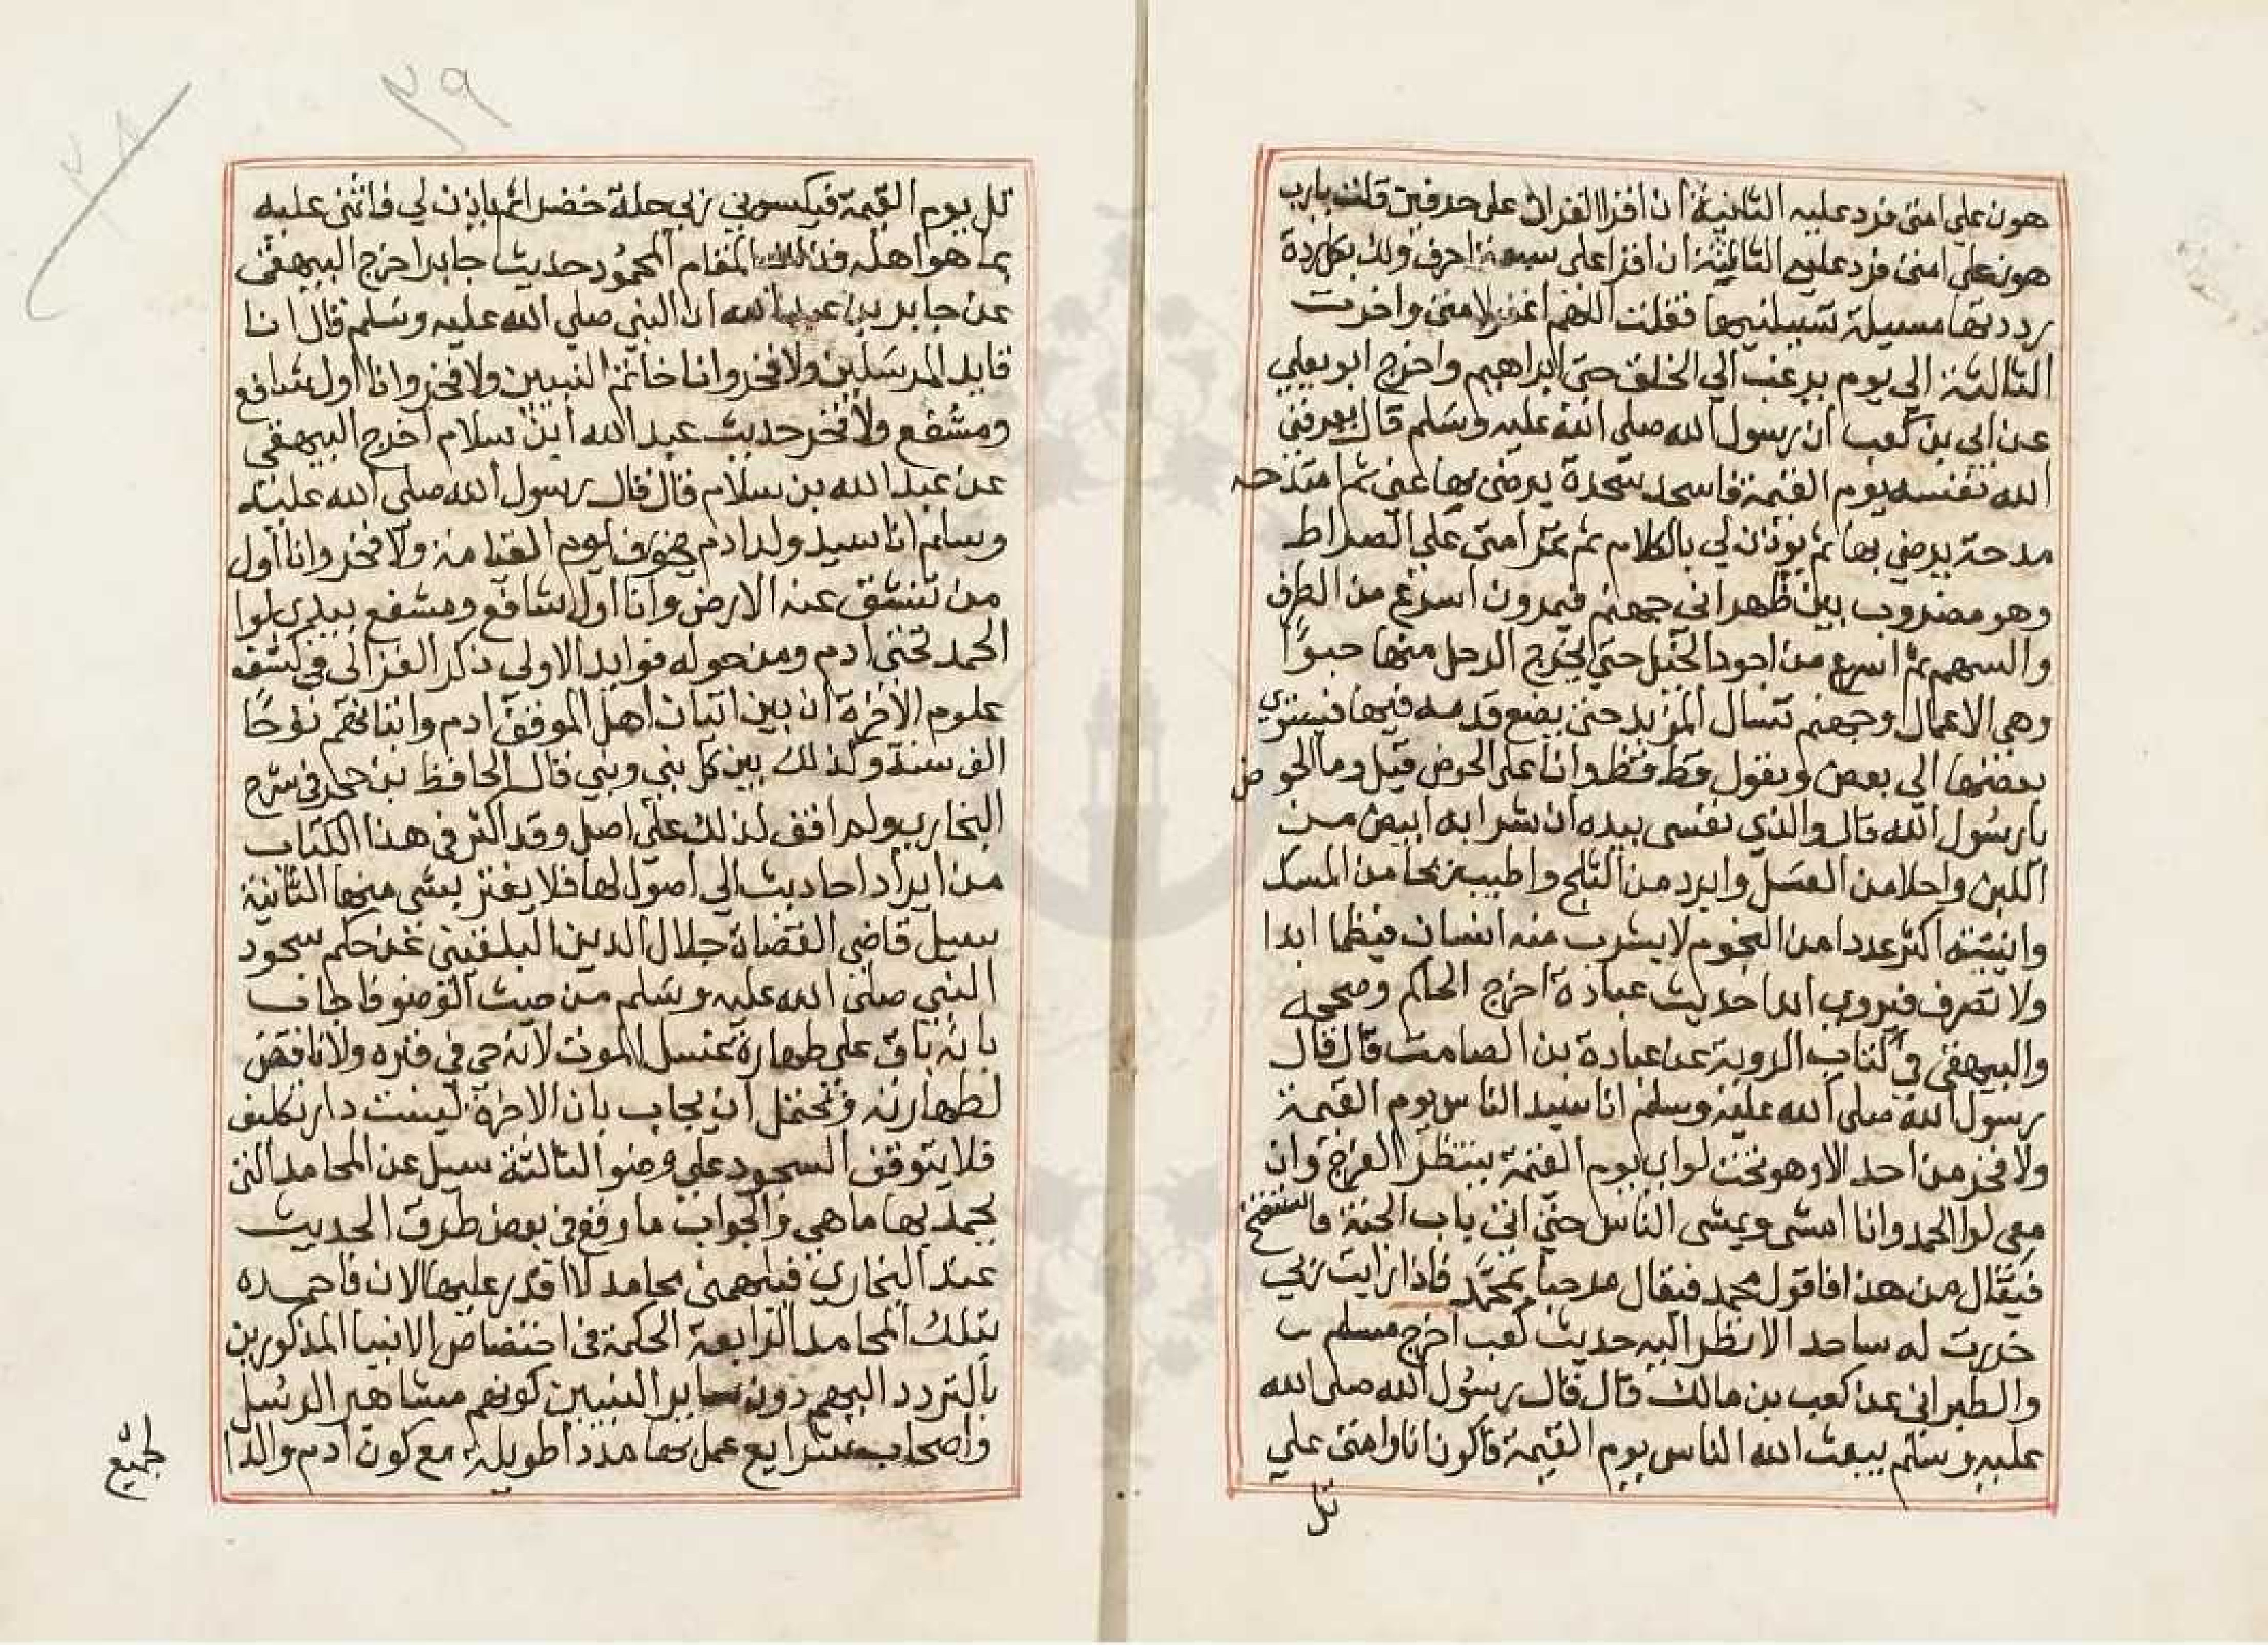 هون علي امتي فرد عليه الثانية ان اقرا القران على حرفين قلت يارب
هون علي امتي فرد علي الثالثة ان اقرا على سبعة احرف ولك بكل ردة
رددتها مسيلة تسيلنيها فقلت اللهم اغفر لامتي واخرت
الثالثة الي يوم يرغب الي الخلق حتى ابراهيم واخرج ابو يعلي
عن ابي بن كعب ان رسول الله صلى الله عليه وسلم قال يعرفني
الله نفسه يوم القيمة فاسجد سجدة يرضى بها عني ثم امتدحه
مدحة يرضي بها ثم يوذن لي بالكلام ثم تمر امتي علي الصراط
وهو مضروب بين ظهراني جهنم فيمرون اسرع من الطرف
والسهم ثم اسرع من اجود الخيل حتي يخرج الرجل منها حبوًا
وهي الاعمال وجهنم تسال المزيد حتى يضع قدمه فيها فينزوي
بعضها الي بعض ويقول قط قط وانا على الحوض قيل وما الحوض
يارسول الله قال والذي نفسى بيده ان شرابه ابيض من
اللبن واحلا من العسل وابرد من الثلج واطيب ريحا من المسك
وانيته اكثر عددا من النجوم لا يشرب منه انسان فيظما ابدا
ولا يصرف فيروي ابدا حديث عبادة اخرج الحاكم وصححه
والبيهقي في كتاب الروية عن عبادة بن الصامت قال قال
رسول الله صلى الله عليه وسلم انا سيد الناس يوم القيمة
ولا فخر من احد الا وهو تحت لواي يوم القيمة ينتظر الفرج وان
معي لوا الحمد وانا امشي ويمشي الناس حتى اتي باب الجنة فاستفتح
فيقال من هذا فاقول محمد فيقال مرحبا بمحمد فاذا رايت ربي
خررت له ساجد الانظر اليه حديث كعب اخرج مسلم
والطبراني عن كعب بن مالك قال قال رسول الله صلى الله
عليه وسلم يبعث الله الناس يوم القيمة فاكون انا وامتي علي
تل
٢٩
تل يوم القيمة فيكسوني ربي حلة خضرا ثم ياذن لي فاثني عليه
بما هو اهله فذلك المقام المحمود حديث جابر اخرج البيهقي
عن جابر بن عبد الله ان النبي صلي الله عليه وسلم قال انا
قايد المرسلين ولا فخر وانا خاتم النبيين ولا فخر وانا اول شافع
ومشفع ولا فخر حديث عبد الله ابن سلام اخرج البيهقي
عن عبد الله بن سلام قال قال رسول الله صلى الله عليه
وسلم انا سيد ولد ادم يوم القيامة ولا فخر وانا اول
من تنشق عنه الارض وانا اول شافع ومشفع بيدي لوا
الحمد تحتي ادم ومن حوله فوايد الاولى ذكر الغزالى في كشف
علوم الاخرة ان بين اتيان اهل الموقف ادم واتيانهم نوحًا
الف سنة وكذلك بين كل نبي ونبي قال الحافظ بن حجر في شرح
البخاري ولم اقف لذلك على اصل وقد اكثر في هذا الكتاب
من ايراد احاديث الي اصول لها فلا يغتر بشي منها الثانية
سيل قاضي القضاة جلال الدين البلقيني عن حكم سجود
النبي صلى الله عليه وسلم من حيث الوضو فاجاب
بانه باق على طهارة غسل الموت لانه حي في قبره ولا ناقض
لطهارته ويحتمل ان يجاب بان الاخرة ليست دار تكليف
فلا يتوقف السجود على وضو الثالثة سيل عن المحامد التي
يحمد بها ما هي والجواب ما وقع في بعض طرق الحديث
عند البخاري فيلهمني بمحامد لا اقدر عليها الان فاحمده
بتلك المحامد الرابعة الحكمة في اختصاص الانبيا المذكورين
بالتردد اليهم دون ساير النبيين كونهم مشاهير الرسل
واصحاب شرايع عمل بها مددا طويلة مع كون ادم والدا
لجميع